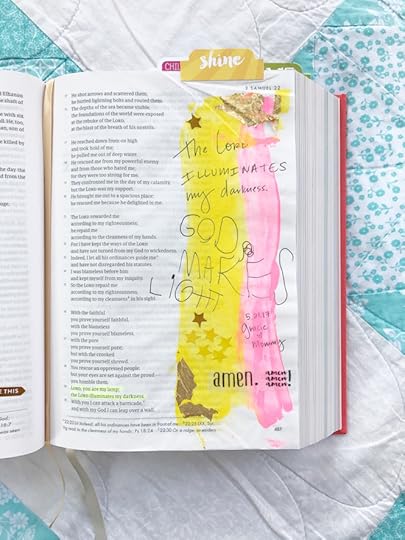 shine
CHIL
2 SAMUEL 22
Elhanan
shaft of
son of
killed by
He shot arrows and scattered them;
he hurled lightning bolts and routed them.
The depths of the sea became visible,
the foundations of the world were exposed
at the rebuke of the LORD,
at the blast of the breath of his nostrils.
He reached down from on high
and took hold of me;
he pulled me out of deep water.
He rescued me from my powerful enemy
and from those who hated me,
for they were too strong for me.
They confronted me in the day of my calamity,
but the LORD was my support.
He brought me out to a spacious place;
he rescued me because he delighted in me.
The LORD rewarded me
according to my righteousness;
he repaid me
according to the cleanness of my hands.
For I have kept the ways of the LORD
and have not turned from my God to wickedness.
Indeed, I let all his ordinances guide me
and have not disregarded his statutes.
I was blameless before him
and kept myself from my iniquity.
So the LORD repaid me
according to my righteousness,
according to my cleanness in his sight.
With the faithful
you prove yourself faithful,
with the blameless
you prove yourself blameless,
with the pure
you prove yourself pure;
but with the crooked
you prove yourself shrewd.
You rescue an oppressed people,
but your eyes are set against the proud—
you humble them.
LORD, you are my lamp;
the LORD illuminates my darkness.
With you I can attack a barricade,
and with my God I can leap over a wall.
the Lord
ILLUMINATES
my darkness.
GOD
MAKES
LIGHT
5.01.17
Gracie
Mommy
amen.
amen!
amen!
amen!
E THIS
God;
18:7
22:23 Lit Indeed, all his ordinances have been in front of me
18:24
22:30 Or a ridge, or raiders
487